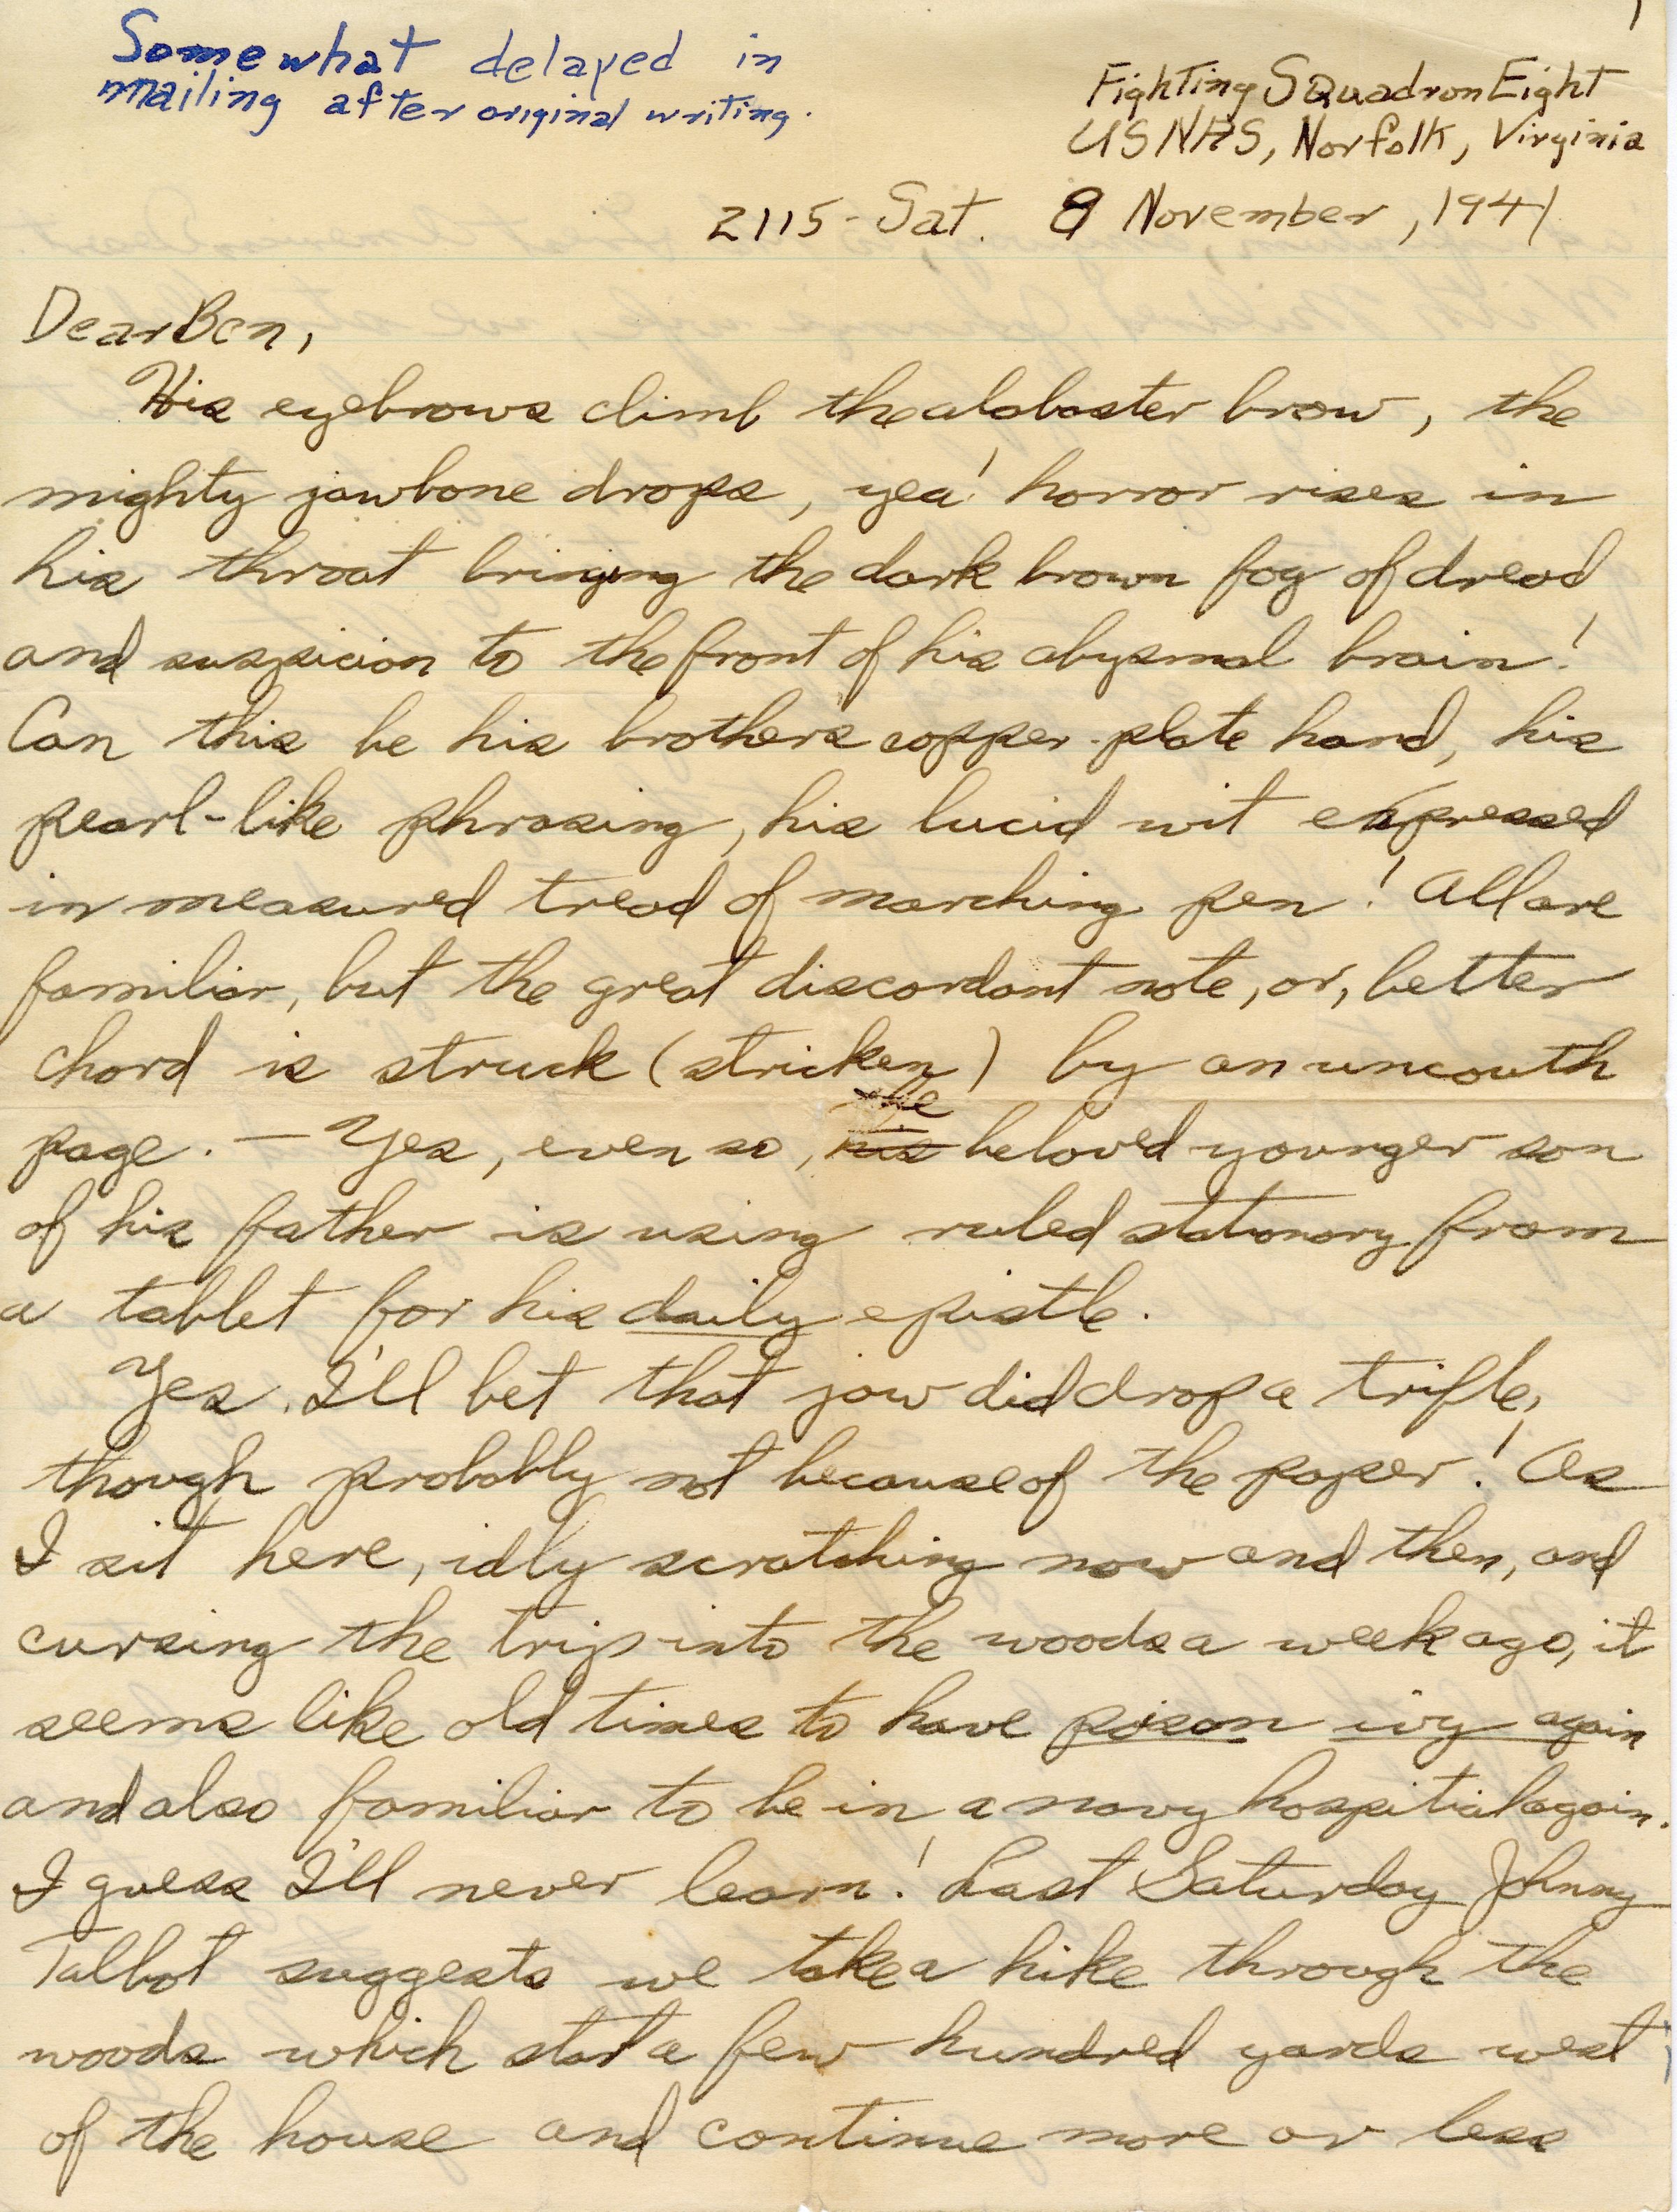 1
Somewhat delayed in
mailing after original writing.
Fighting Squadron Eight
USNAS, Norfolk, Virginia
2115 - Sat. 8 November, 1941
Dear Ben,
His eyebrows climb the alabaster brow, the
mighty jawbone drops, yea! horror rises in
his throat bringing the dark brown fog of dread
and suspicion to the front of his abysmal brain!
Can this be his brothers copper-plate hand, his
pearl-like phrasing, his lucid wit expressed
in measured tread of marching pen! All are
familiar, but the great discordant note, or, better
chord is struck (stricken) by an uncouth
page. — Yes, even so, the beloved younger son
of his father is using ruled stationary from
a tablet for his daily epistle.
Yes, I'll bet that jaw did drop a trifle,
though probably not because of the paper! As
I sit here, idly scratching now and then, and
cursing the trip into the woods a week ago, it
seems like old times to have poison ivy again
and also familiar to be in a navy hospitial again.
I guess I'll never learn! Last Saturday Johnny
Talbot suggests we take a hike through the
woods which start a few hundred yards west
of the house and continue more or less